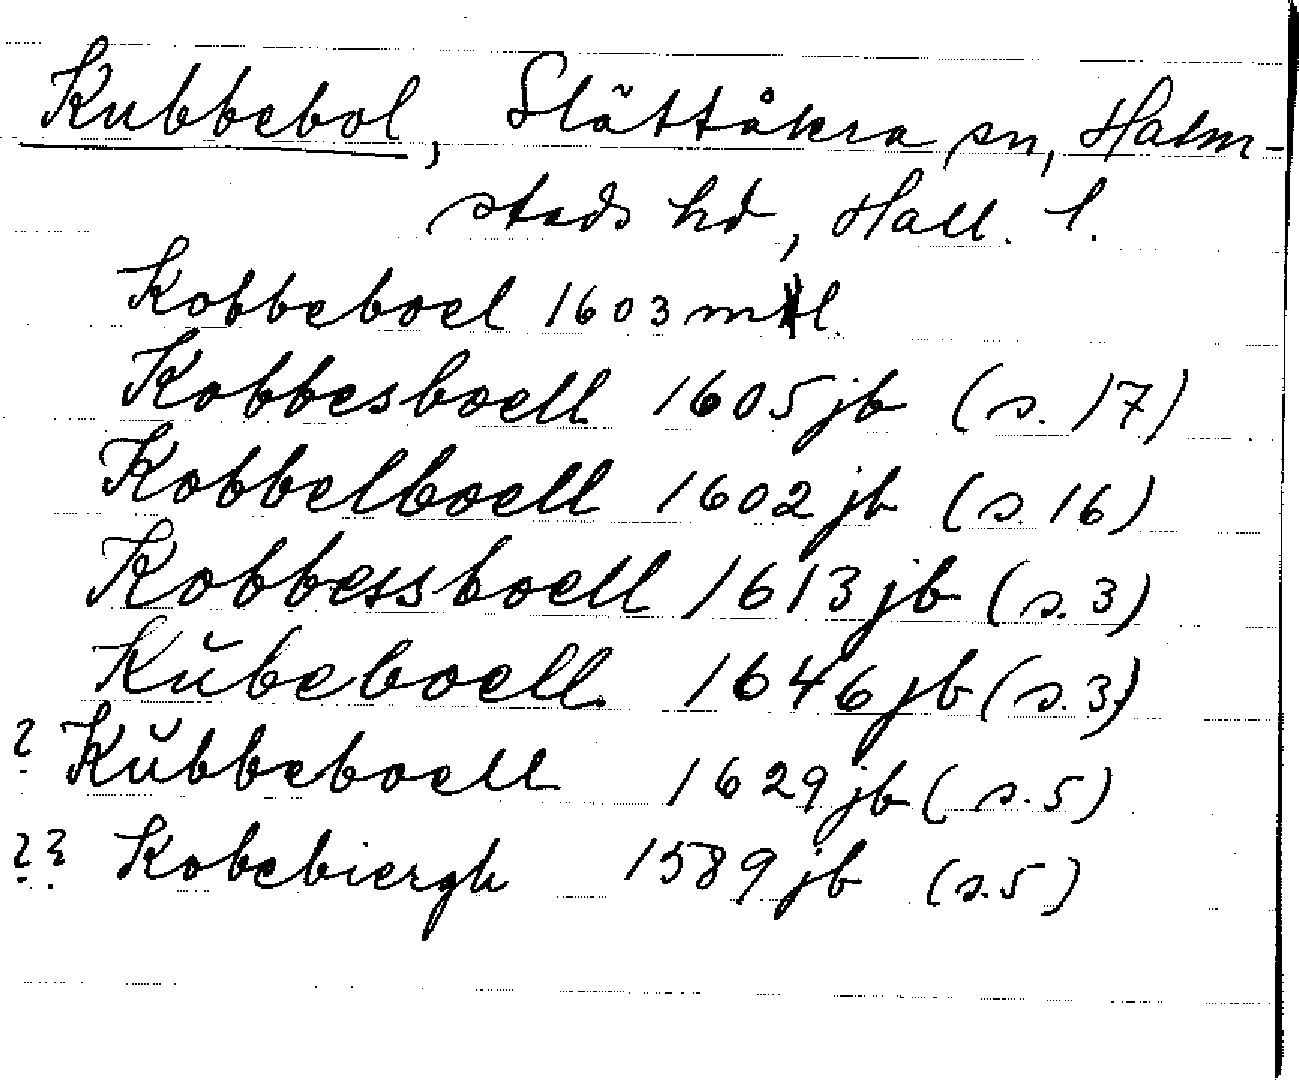 Kubbebol, Slättåkra sn, Halm-
stads hd, Hall. l.
Kobbeboel 1603 mtl.
Kobbesboell 1605 jb (s. 17)
Kobbelboell 1602 jb (s. 16)
Kobbessboell 1613 jb (s. 3)
Kŭbeboell. 1646 jb (s. 3)
? Kŭbbeboell 1629 jb (s. 5)
?? Kobebiergh 1589 jb (s. 5)